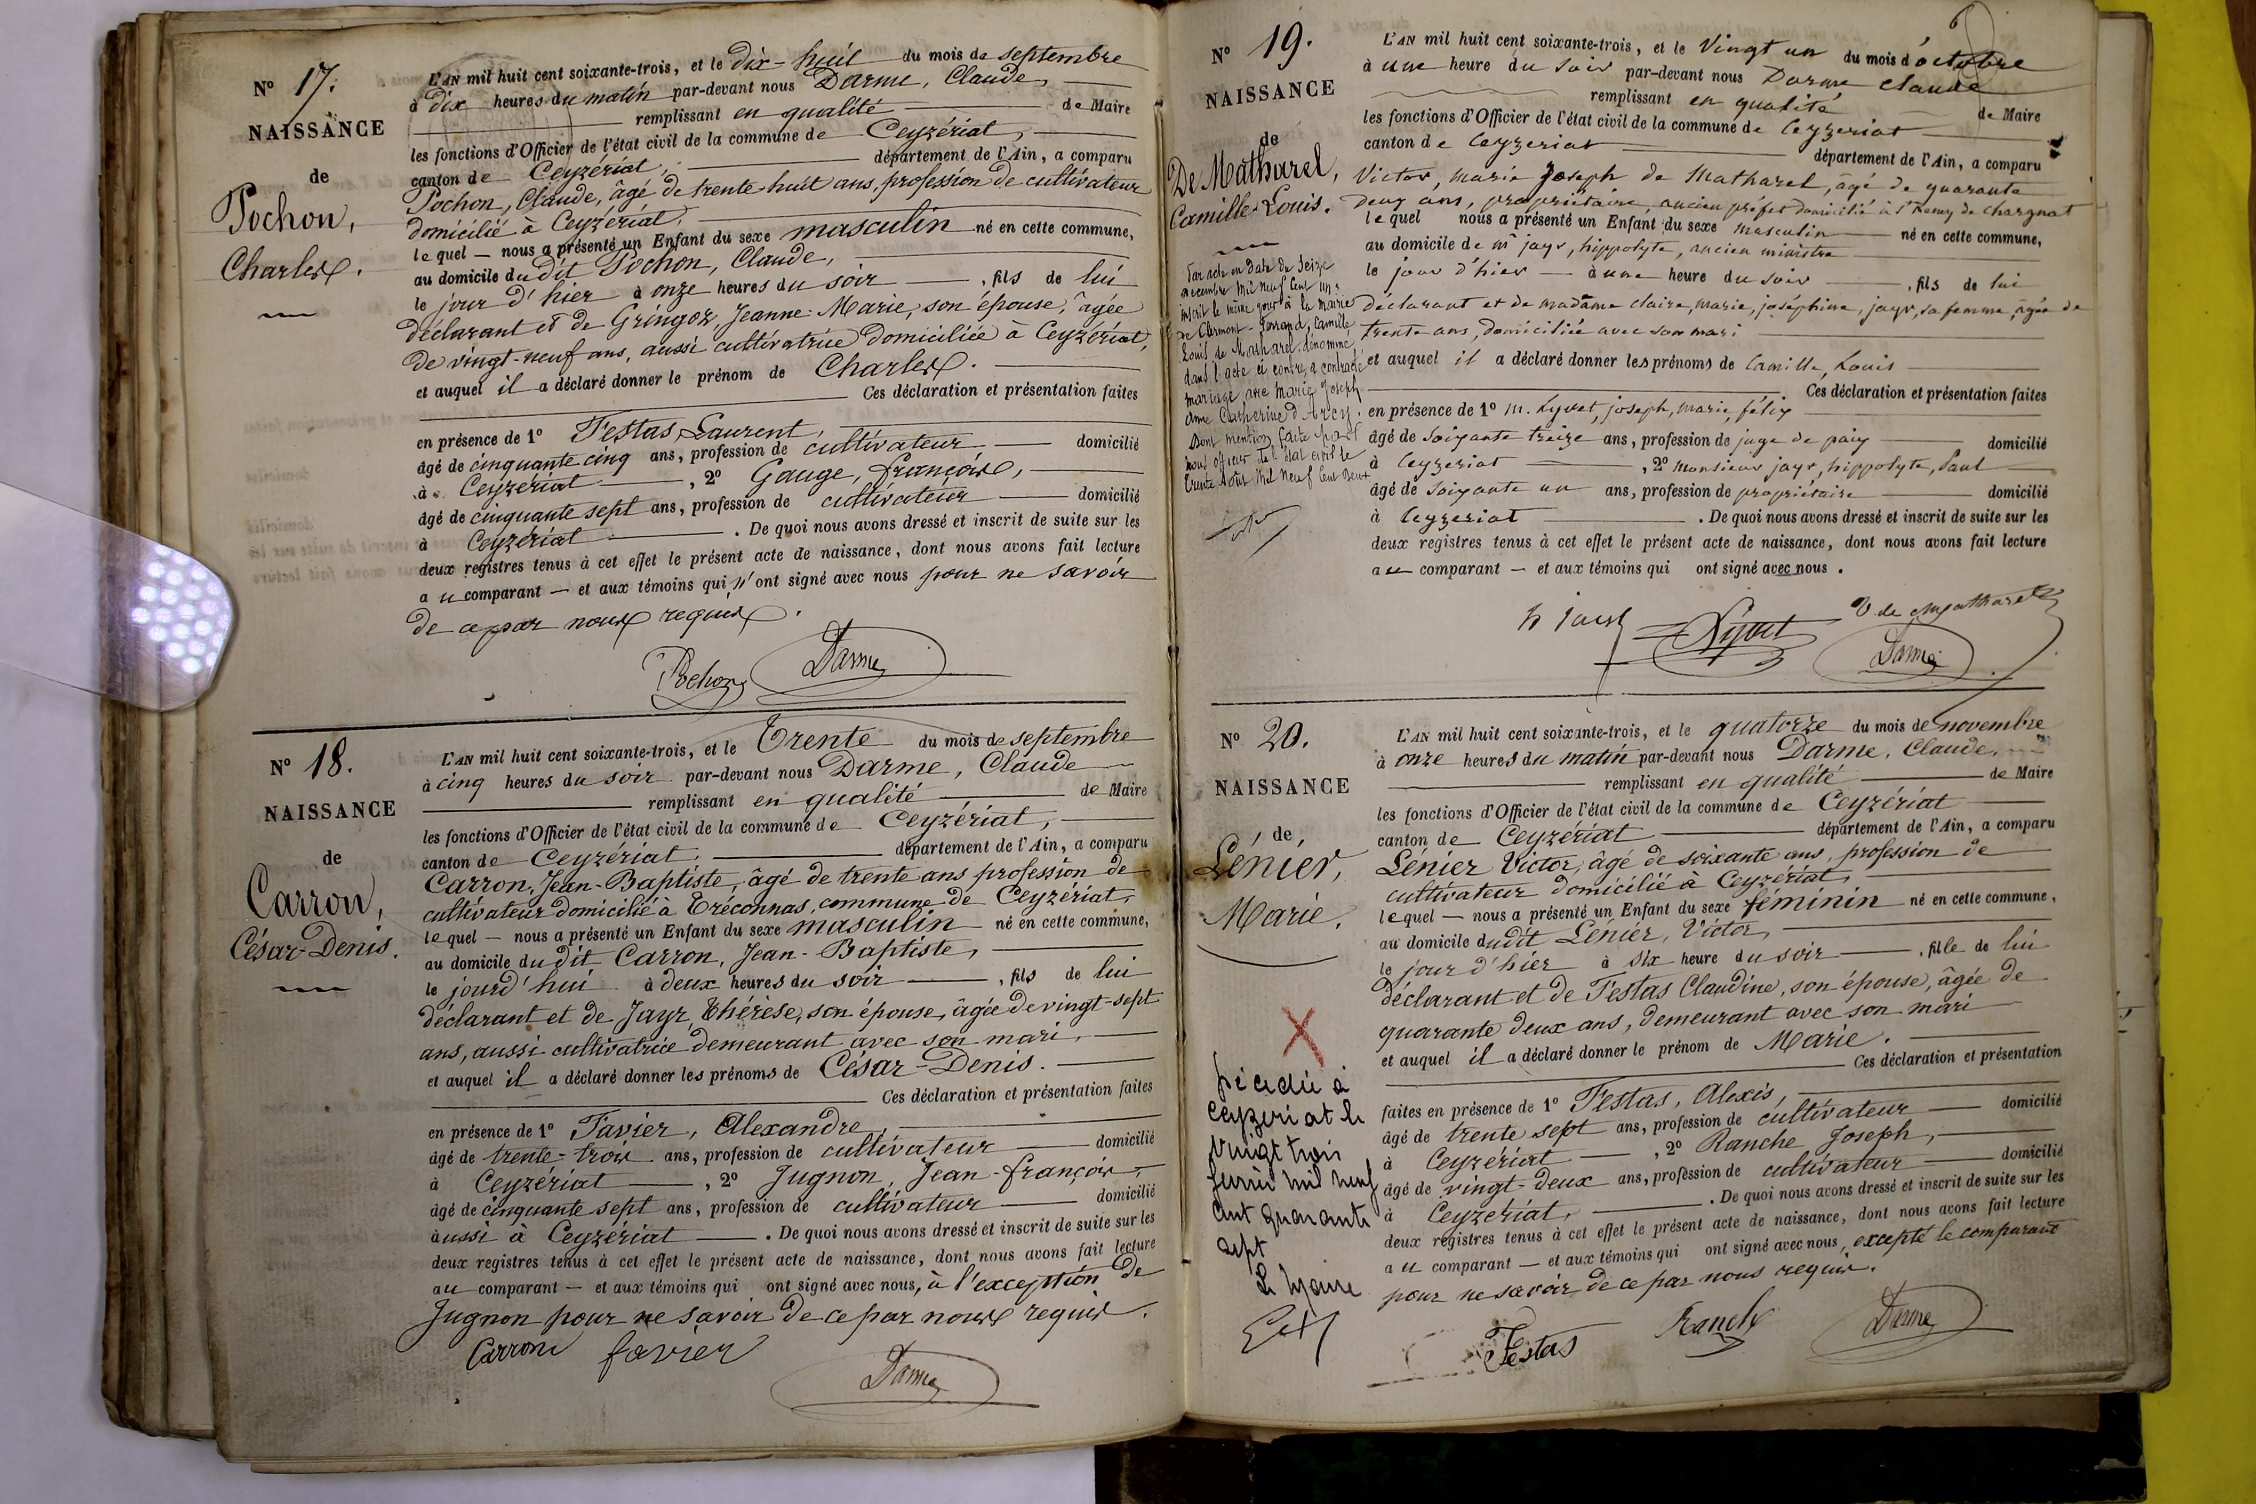 N° 17.
NAISSANCE
de
Pochon,
Charles.
L'AN mil huit cent soixante-trois, et le dix-huit du mois de septembre
à dix heures du matin par-devant nous Darme, Claude,
remplissant en qualité de Maire
les fonctions d'Officier de l'état civil de la commune de Ceyzériat,
canton de Ceyzériat, département de l'Ain, a comparu
Pochon, Claude, âgé de trente-huit ans, profession de cultivateur
domicilié à Ceyzériat,
lequel — nous a présenté un Enfant du sexe masculin né en cette commune,
au domicile dudit Pochon, Claude,
le jour d'hier à onze heures du soir, fils de lui
déclarant et de Gringoz Jeanne-Marie, son épouse, âgée
de vingt-neuf ans, aussi cultivatrice domiciliée à Ceyzériat,
et auquel il a déclaré donner le prénom de Charles.
Ces déclaration et présentation faites
en présence de 1° Festas, Laurent,
âgé de cinquante cinq ans, profession de cultivateur domicilié
à Ceyzériat, 2° Gauge, François,
âgé de cinquante sept ans, profession de cultivateur domicilié
à Ceyzériat. De quoi nous avons dressé et inscrit de suite sur les
deux registres tenus à cet effet le présent acte de naissance, dont nous avons fait lecture
au comparant — et aux témoins qui n'ont signé avec nous pour ne savoir
de ce par nous requis.
Pochon Darme
N° 18.
NAISSANCE
de
Carron,
César-Denis.
L'AN mil huit cent soixante-trois, et le Trente du mois de septembre
à cinq heures du soir par-devant nous Darme, Claude
remplissant en qualité de Maire
les fonctions d'Officier de l'état civil de la commune de Ceyzériat,
canton de Ceyzériat, département de l'Ain, a comparu
Carron, Jean-Baptiste, âgé de trente ans profession de
cultivateur domicilié à Tréconnas, commune de Ceyzériat,
lequel — nous a présenté un Enfant du sexe masculin né en cette commune,
au domicile dudit Carron, Jean-Baptiste,
le jourd'hui à deux heures du soir, fils de lui
déclarant et de Jayr Thérèse, son épouse, âgée de vingt-sept
ans, aussi cultivatrice demeurant avec son mari,
et auquel il a déclaré donner les prénoms de César-Denis.
Ces déclaration et présentation faites
en présence de 1° Favier, Alexandre,
âgé de trente-trois ans, profession de cultivateur domicilié
à Ceyzériat, 2° Jugnon, Jean-François,
âgé de cinquante sept ans, profession de cultivateur domicilié
aussi à Ceyzériat. De quoi nous avons dressé et inscrit de suite sur les
deux registres tenus à cet effet le présent acte de naissance, dont nous avons fait lecture
au comparant — et aux témoins qui ont signé avec nous, à l'exception de
Jugnon pour ne savoir de ce par nous requis.
Carron favier
Darme
N° 19.
NAISSANCE
de
De Matharel,
Camille-Louis.
Par acte en date du seize
décembre mil neuf cent un
inscrit le même jour à la mairie
de Clermont-Ferrand, Camille
Louis de Matharel dénommé
dans l'acte ci contre, a contracté
mariage avec Marie Joseph
Anne Catherine d'Arcy.
Dont mention faite par
nous officier de l'état civil le
trente Août mil neuf cent deux
L'AN mil huit cent soixante-trois, et le Vingt un du mois d'octobre
à une heure du soir par-devant nous Darme Claude
remplissant en qualité de Maire
les fonctions d'Officier de l'état civil de la commune de Ceyzeriat
canton de Ceyzeriat département de l'Ain, a comparu
Victor, marie Joseph de Matharel, âgé de quarante
deux ans, propriétaire ancien préfet domicilié à St Remy de Chargnat
lequel nous a présenté un Enfant du sexe masculin né en cette commune,
au domicile de mr jayr, hippolyte, ancien ministre
le jour d'hier à une heure du soir, fils de lui
déclarant et de madame claire, marie, joséphine, jayr, sa femme, âgée de
trente ans, domiciliée avec son mari
et auquel il a déclaré donner les prénoms de Camille, Louis
Ces déclaration et présentation faites
en présence de 1° m. Lyvet, joseph, marie, félix
âgé de soixante treize ans, profession de juge de paix domicilié
à Ceyzeriat, 2° monsieur jayr, hippolyte, Paul
âgé de soixante un ans, profession de propriétaire domicilié
à Ceyzeriat. De quoi nous avons dressé et inscrit de suite sur les
deux registres tenus à cet effet le présent acte de naissance, dont nous avons fait lecture
au comparant — et aux témoins qui ont signé avec nous.
h jayr Lyvet V. de Matharel
Darme
N° 20.
NAISSANCE
de
Lénier,
Marie.
X
Décédée à
Ceyzeriat le
vingt trois
février mil neuf
cent quarante
sept
Le Maire
L'AN mil huit cent soixante-trois, et le quatorze du mois de novembre
à onze heures du matin par-devant nous Darme, Claude,
remplissant en qualité de Maire
les fonctions d'Officier de l'état civil de la commune de Ceyzériat
canton de Ceyzériat département de l'Ain, a comparu
Lénier Victor, âgé de soixante ans, profession de
cultivateur domicilié à Ceyzériat,
lequel — nous a présenté un Enfant du sexe féminin né en cette commune,
au domicile dudit Lénier, Victor,
le jour d'hier à six heure du soir, fille de lui
déclarant et de Festas Claudine, son épouse, âgée de
quarante deux ans, demeurant avec son mari
et auquel il a déclaré donner le prénom de Marie.
Ces déclaration et présentation
faites en présence de 1° Festas, Alexis,
âgé de trente sept ans, profession de cultivateur domicilié
à Ceyzériat, 2° Ranche Joseph,
âgé de vingt-deux ans, profession de cultivateur domicilié
à Ceyzériat. De quoi nous avons dressé et inscrit de suite sur les
deux registres tenus à cet effet le présent acte de naissance, dont nous avons fait lecture
au comparant — et aux témoins qui ont signé avec nous, excepté le comparant
pour ne savoir, de ce par nous requis.
Festas Ranche Darme